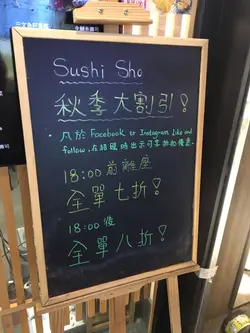 Sushi Sho
秋季大割引!
• 凡於 Facebook or Instagram like and
follow, 在結賬時出示可享折扣優惠.
18:00 前離座
全單七折!
18:00 後
全單八折!